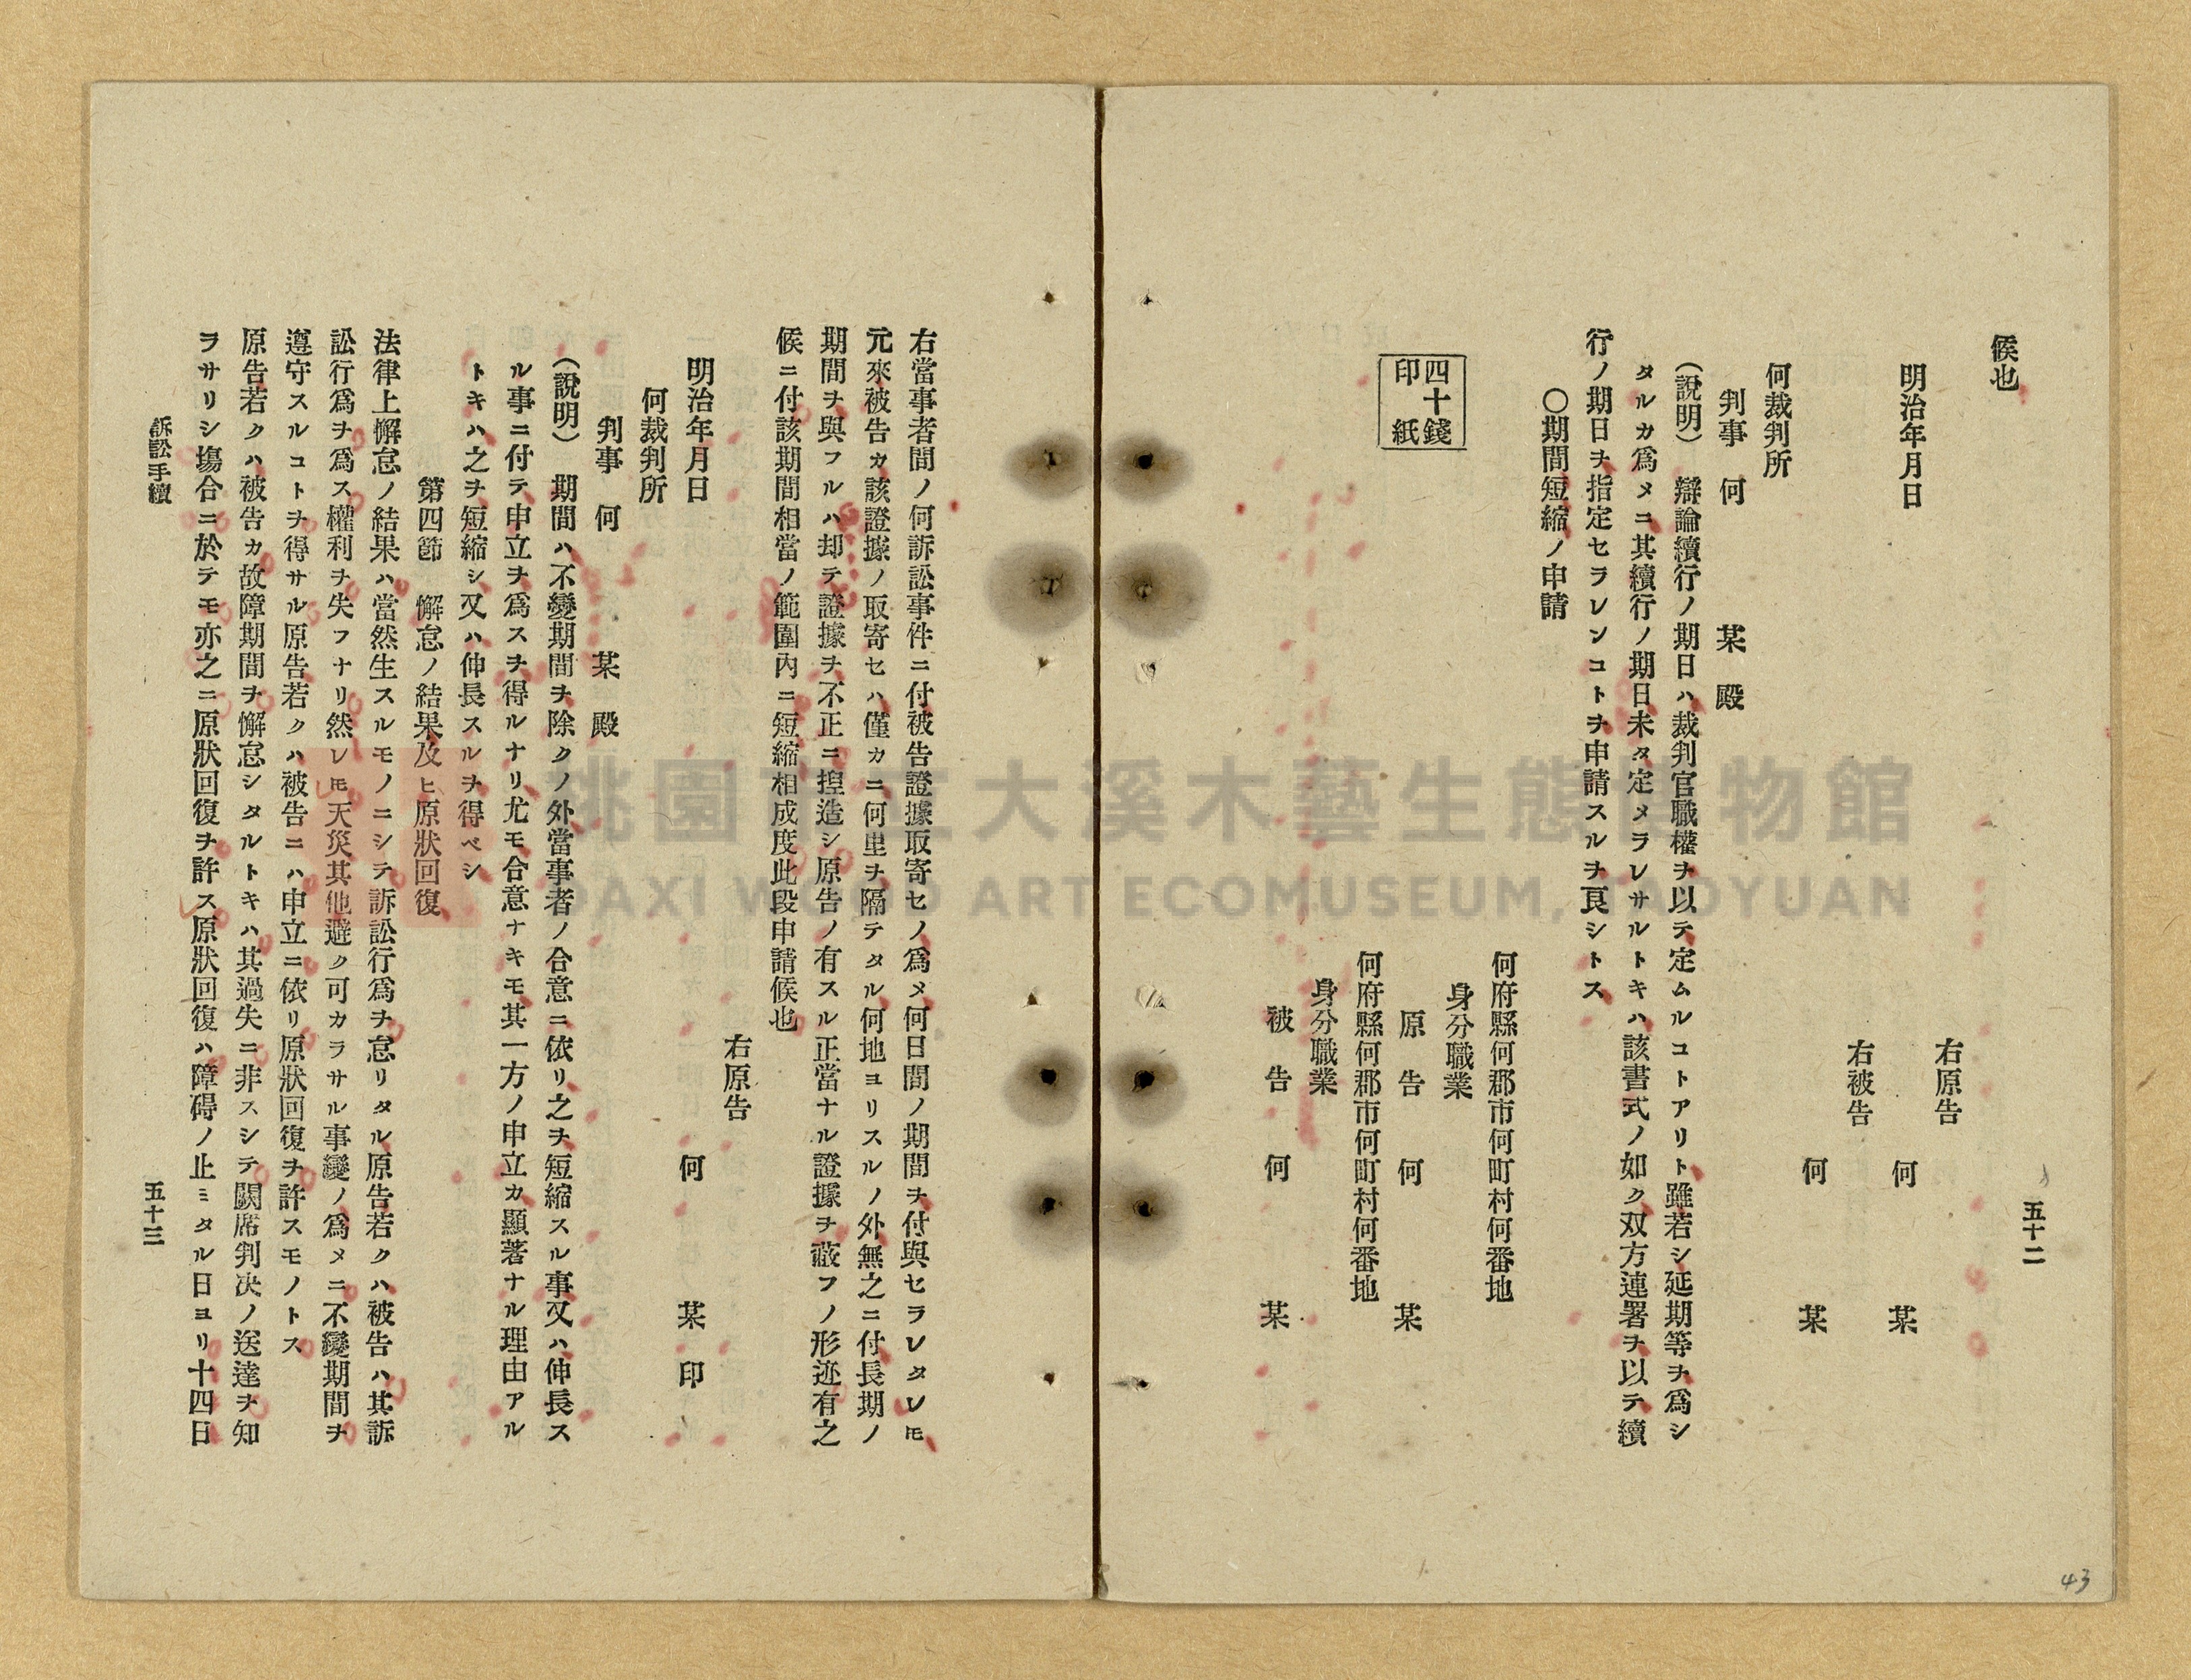 五十二
候也
右原告
何 某
明治年月日
右被告
何 某
何裁判所
判事 何 某 殿
(說明) 辯論續行ノ期日ハ裁判官職權ヲ以テ定ムルコトアリト雖若シ延期等ヲ爲シ
タルカ爲メニ其續行ノ期日未タ定メラレサルトキハ該書式ノ如ク双方連署ヲ以テ續
行ノ期日ヲ指定セラレンコトヲ申請スルヲ良シトス
〇期間短縮ノ申請
何府縣何郡市何町村何番地
身分職業
原告 何 某
四十錢
印紙
何府縣何郡市何町村何番地
身分職業
被告 何 某
右當事者間ノ何訴訟事件ニ付被告證據取寄セノ爲メ何日間ノ期間ヲ付與セラレタレㇳモ
元來被告カ該證據ノ取寄セハ僅カニ何里ヲ隔テタル何地ヨリスルノ外無之ニ付長期ノ
期間ヲ與フルハ却テ證據ヲ不正ニ揑造シ原告ノ有スル正當ナル證據ヲ蔽フノ形迹有之
候ニ付該期間相當ノ範圍內ニ短縮相成度此段申請候也
右原告
何 某 印
明治年月日
何裁判所
判事 何 某 殿
(說明) 期間ハ不變期間ヲ除クノ外當事者ノ合意ニ依リ之ヲ短縮スル事又ハ伸長ス
ル事ニ付テ申立ヲ爲スヲ得ルナリ尤モ合意ナキモ其一方ノ申立カ顯著ナル理由アル
トキハ之ヲ短縮シ又ハ伸長スルヲ得ベシ
第四節 懈怠ノ結果及ヒ原狀回復
法律上懈怠ノ結果ハ當然生スルモノニシテ訴訟行爲ヲ怠リタル原告若クハ被告ハ其訴
訟行爲ヲ爲ス權利ヲ失フナリ然レㇳモ天災其他避ク可カラサル事變ノ爲メニ不變期間ヲ
遵守スルコトヲ得サル原告若クハ被告ニハ申立ニ依リ原狀回復ヲ許スモノトス
原告若クハ被告カ故障期間ヲ懈怠シタルトキハ其過失ニ非スシテ闕席判決ノ送達ヲ知
ヲサリシ塲合ニ於テモ亦之ニ原狀回復ヲ許ス原狀回復ハ障碍ノ止ミタル日ヨリ十四日
訴訟手續
五十三
43
桃園市立大溪木藝生態博物館
DAXI WOOD ART ECOMUSEUM, TAOYUAN